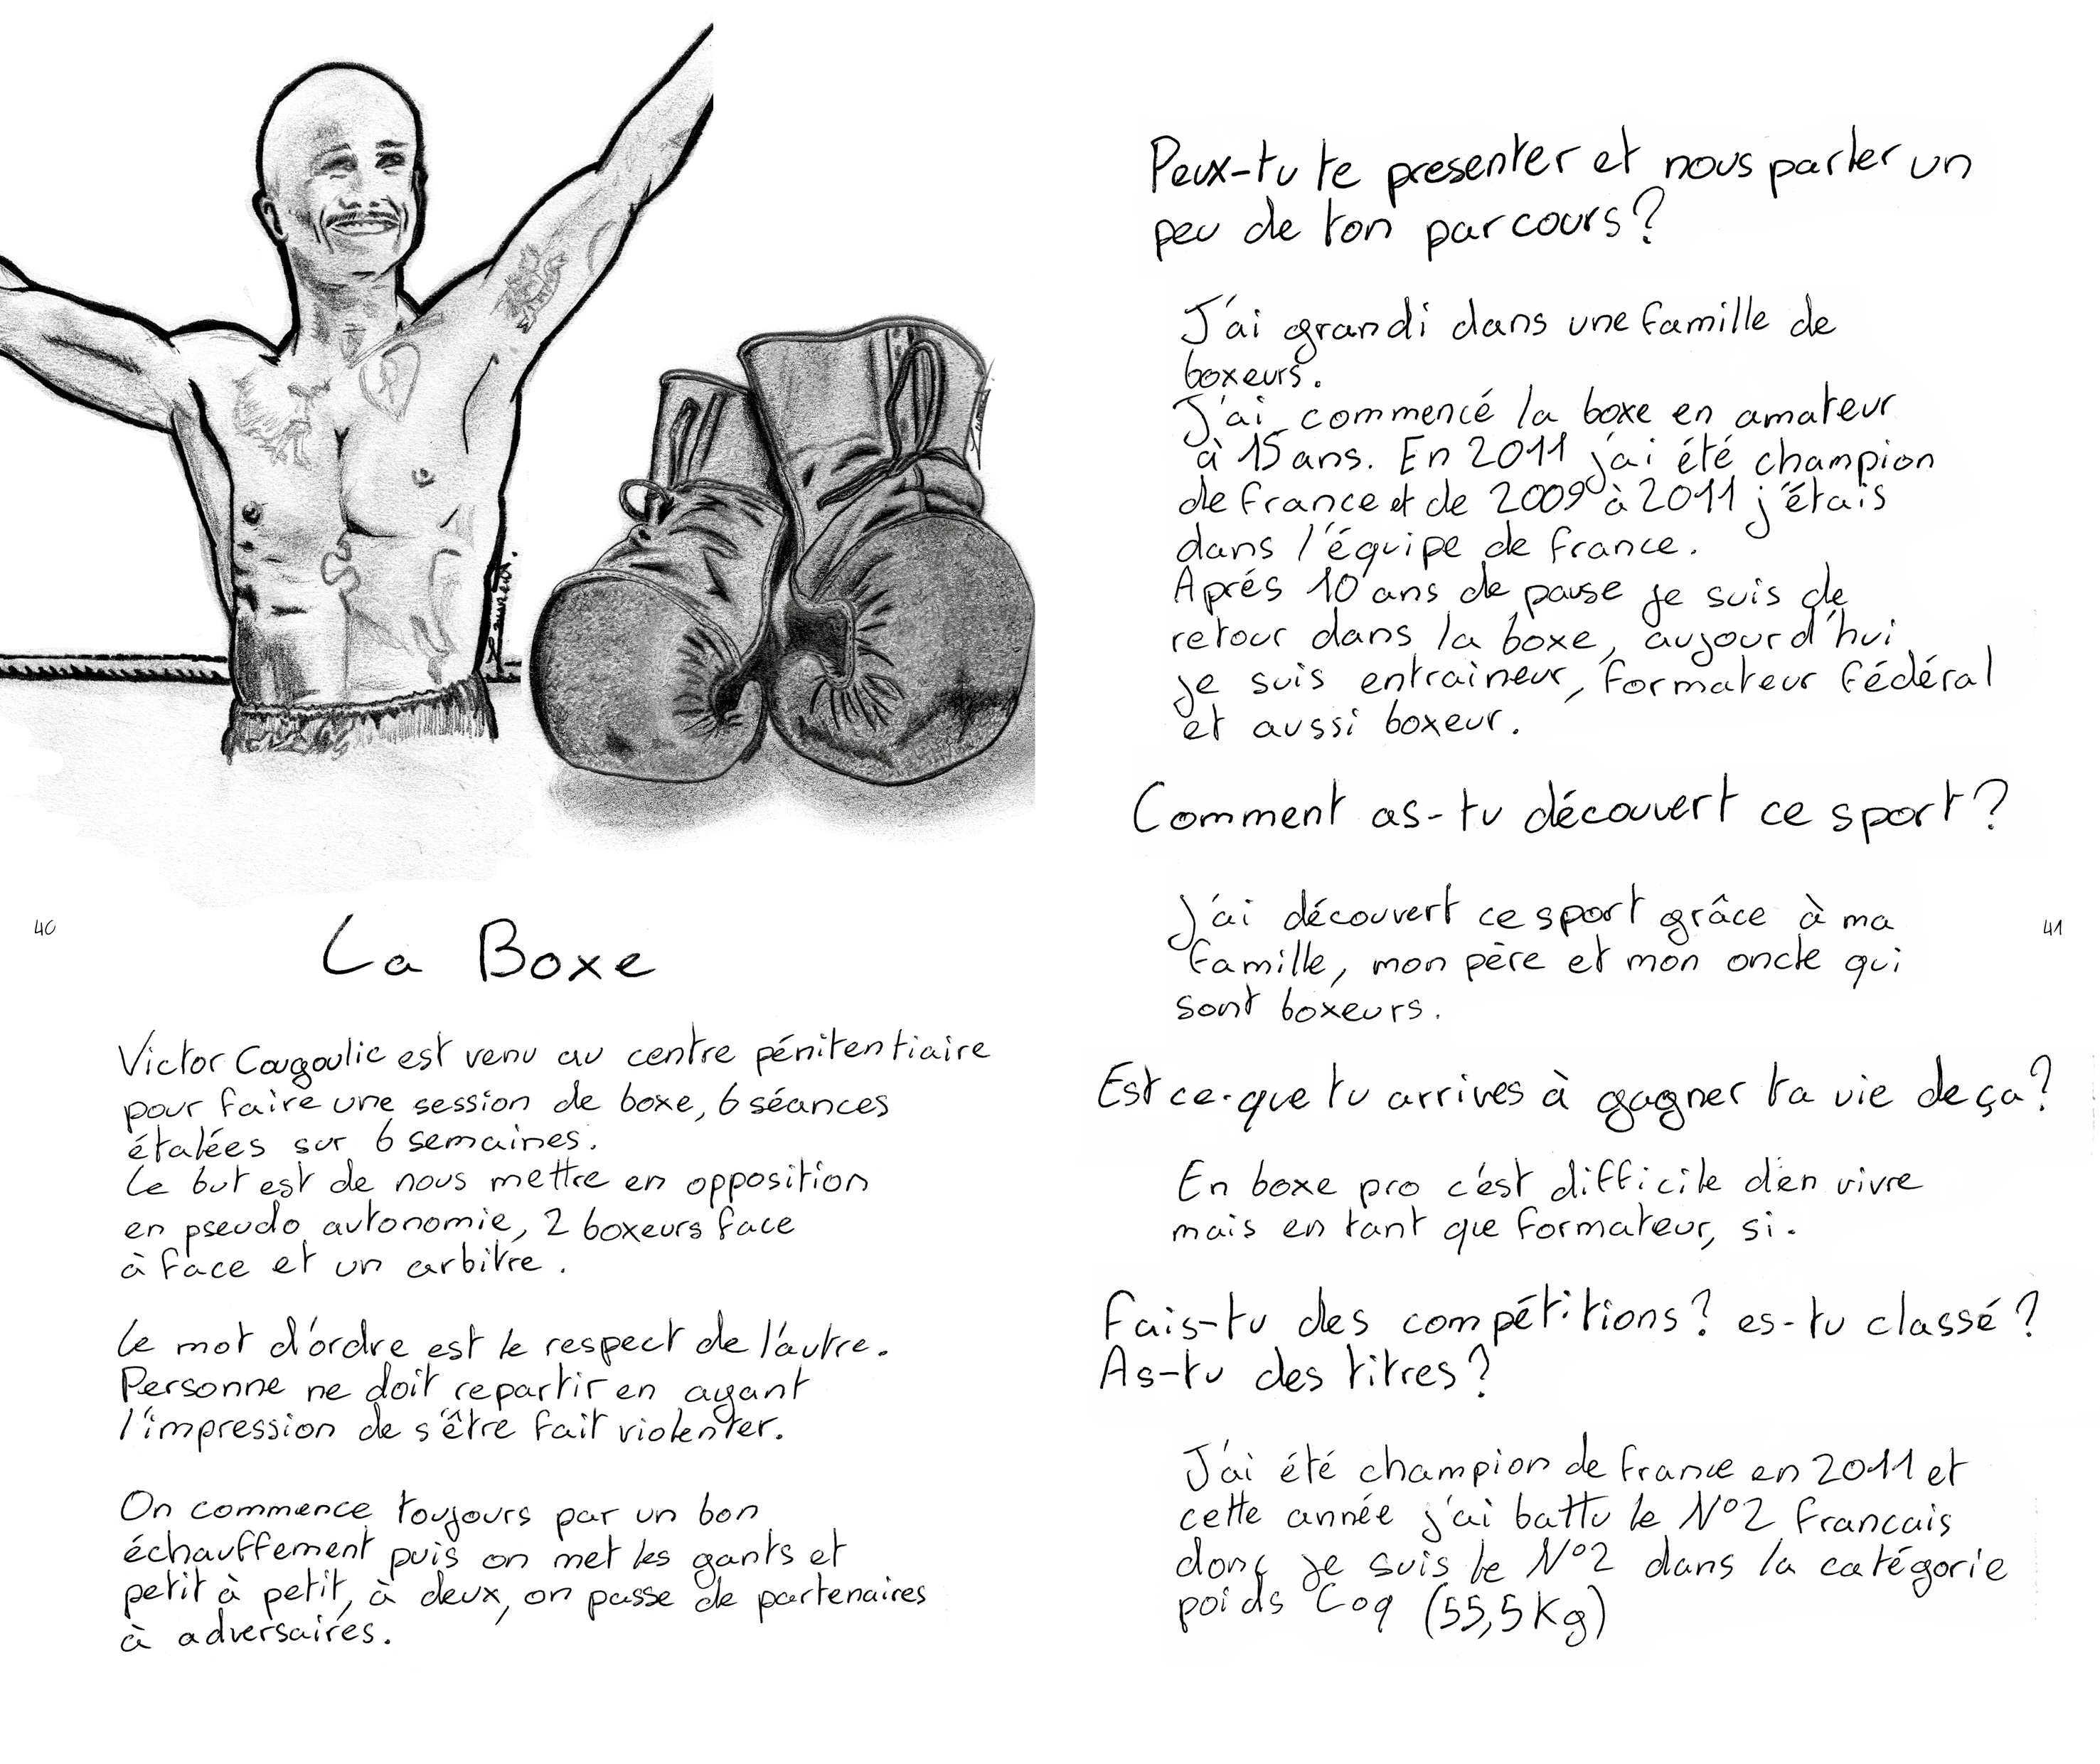 La Boxe
Victor Cougoulic est venu au centre pénitentiaire
pour faire une session de boxe, 6 séances
étalées sur 6 semaines.
Le but est de nous mettre en opposition
en pseudo autonomie, 2 boxeurs face
à face et un arbitre.
Le mot d'ordre est le respect de l'autre.
Personne ne doit repartir en ayant
l'impression de s'être fait violenter.
On commence toujours par un bon
échauffement puis on met les gants et
petit à petit, à deux, on passe de partenaires
à adversaires.
40
Peux-tu te presenter et nous parler un
peu de ton parcours?
J'ai grandi dans une famille de
boxeurs.
J'ai commencé la boxe en amateur
à 15 ans. En 2011 j'ai été champion
de france et de 2009 à 2011 j'étais
dans l'équipe de france.
Aprés 10 ans de pause je suis de
retour dans la boxe, aujourd'hui
je suis entraineur, formateur fédéral
et aussi boxeur.
Comment as-tu découvert ce sport?
J'ai découvert ce sport grâce à ma
famille, mon père et mon oncle qui
sont boxeurs.
Est ce-que tu arrives à gagner ta vie de ça?
En boxe pro c'est difficile d'en vivre
mais en tant que formateur, si.
Fais-tu des compétitions? es-tu classé?
As-tu des titres?
J'ai été champion de france en 2011 et
cette année j'ai battu le N°2 francais
donc je suis le N°2 dans la catégorie
poids Coq (55,5Kg)
41